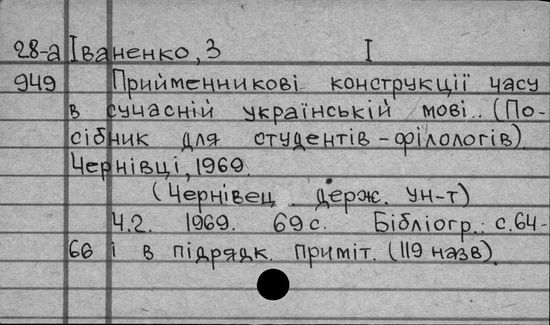 28-а Іваненко, З I
949 Прийменникові конструкції часу
в сучасній українській мові.. (По-
сібник для студентів-філологів).
Чернівці, 1969.
(Чернівец держ. ун-т)
Ч.2. 1969. 69 с. Бібліогр.: с. 64-
66 і в підрядк. приміт. (119 назв).